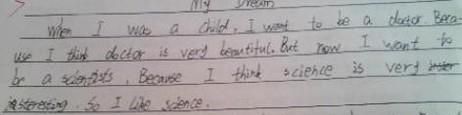 My Dream
When I was a child, I want to be a doctor. Beca-
use I think doctor is very beautiful. But now I want to
be a scientists. Because I think science is very
interesting. So I like science.